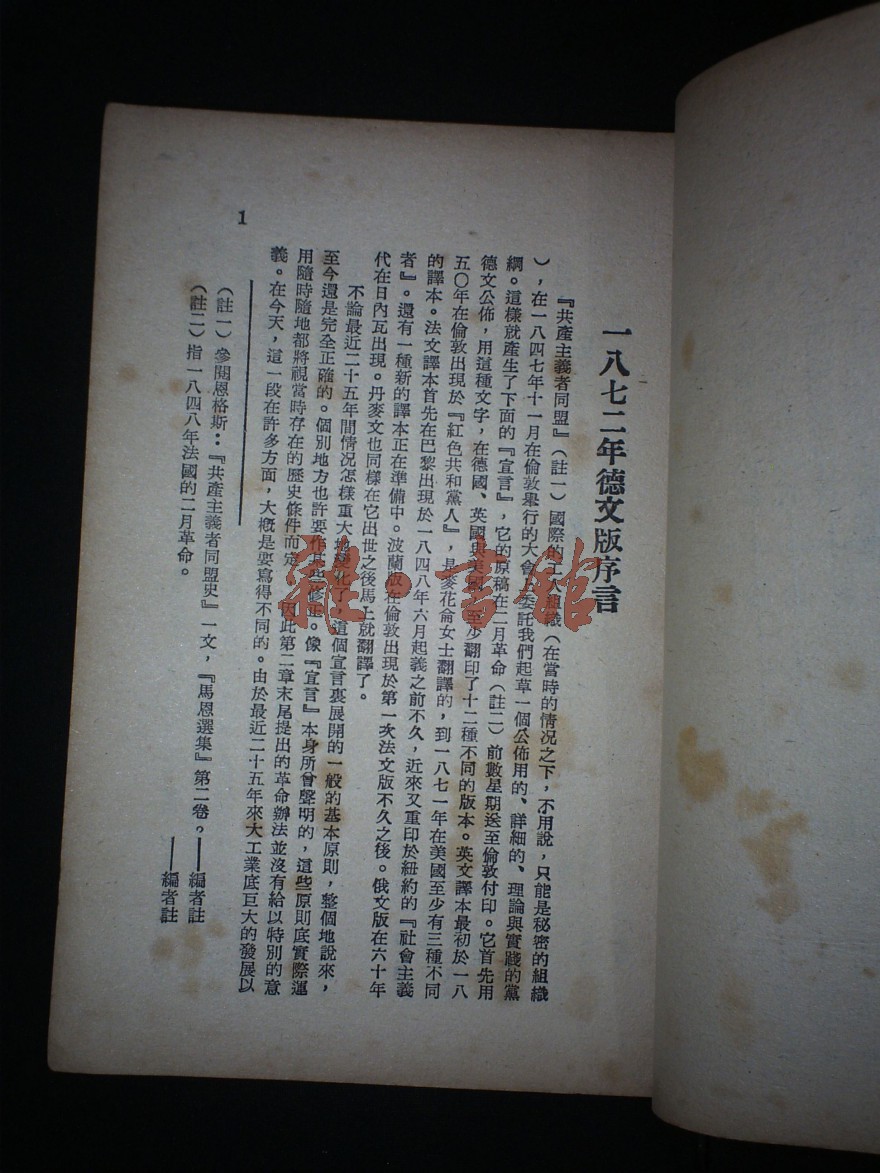 一八七二年德文版序言
『共產主義者同盟』(註一)國際的工人組織(在當時的情況之下,不用說,只能是秘密的組織
),在一八四七年十一月在倫敦舉行的大會上委託我們起草一個公佈用的、詳細的、理論與實踐的黨
綱。這樣就產生了下面的『宣言』,它的原稿在二月革命(註二)前數星期送至倫敦付印。它首先用
德文公佈,用這種文字,在德國、英國與美國 至少翻印了十二種不同的版本。英文譯本最初於一八
五〇年在倫敦出現於『紅色共和黨人』,是麥花侖女士翻譯的,到一八七一年在美國至少有三種不同
的譯本。法文譯本首先在巴黎出現於一八四八年六月起義之前不久,近來又重印於紐約的『社會主義
者』。還有一種新的譯本正在準備中。波蘭版在倫敦出現於第一次法文版不久之後。俄文版在六十年
代在日內瓦出現。丹麥文也同樣在它出世之後馬上就翻譯了。
不論最近二十五年間情況怎樣重大地變化了,這個宣言裏展開的一般的基本原則,整個地說來,
至今還是完全正確的。個別地方也許要作某些修正。像『宣言』本身所曾聲明的,這些原則底實際運
用隨時隨地都將視當時存在的歷史條件而定 因此第二章末尾提出的革命辦法並沒有給以特別的意
義。在今天,這一段在許多方面,大概是要寫得不同的。由於最近二十五年來大工業底巨大的發展以
(註一)參閱恩格斯:『共產主義者同盟史』一文,『馬恩選集』第二卷。——編者註
(註二)指一八四八年法國的二月革命。——編者註
1
雜·書館